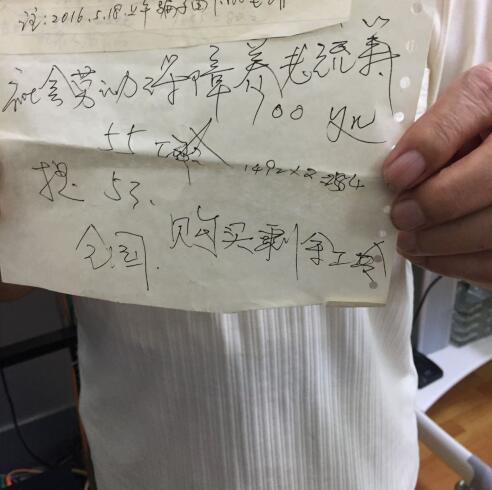 注:2016.5.18.上午骗子
社会劳动保障养老统筹
900 好几
55 工
1492×2=2984
提. 53.
全国. 购买剩余工龄